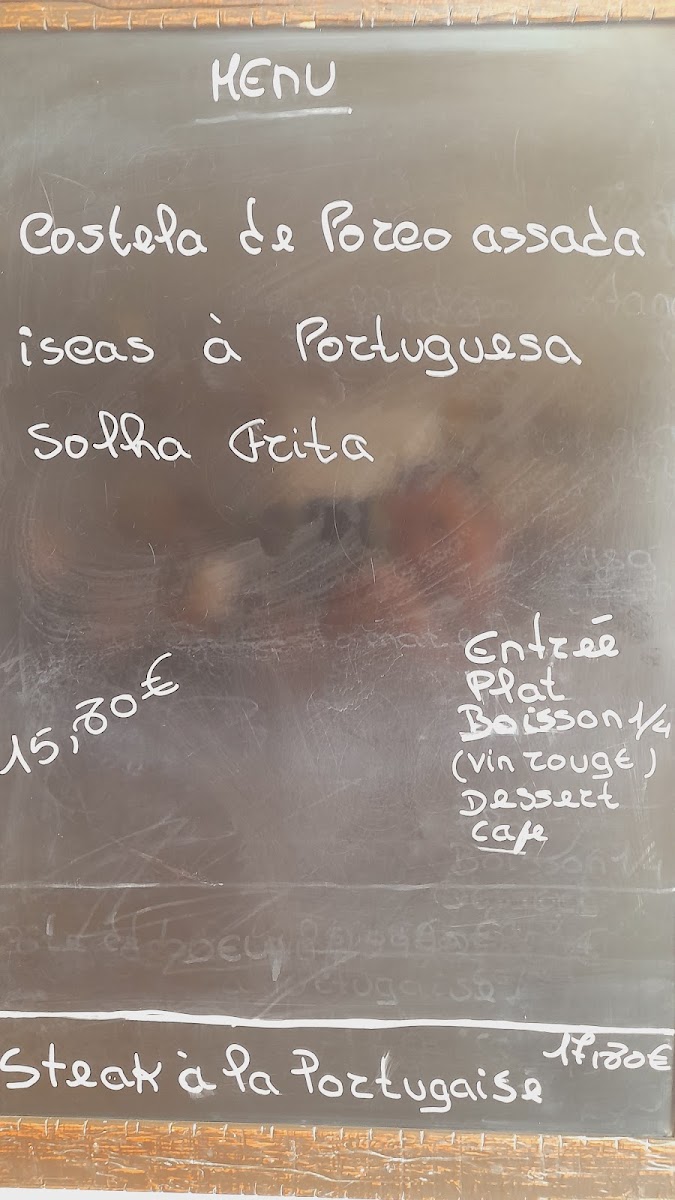 MENU
Costela de Porco assada
iscas à Portuguesa
Solha Frita
Entréé
Plat
15,80€
Boisson 1/4
(vin rouge)
Dessert
Cafe
17,80€
Steak à la Portugaise